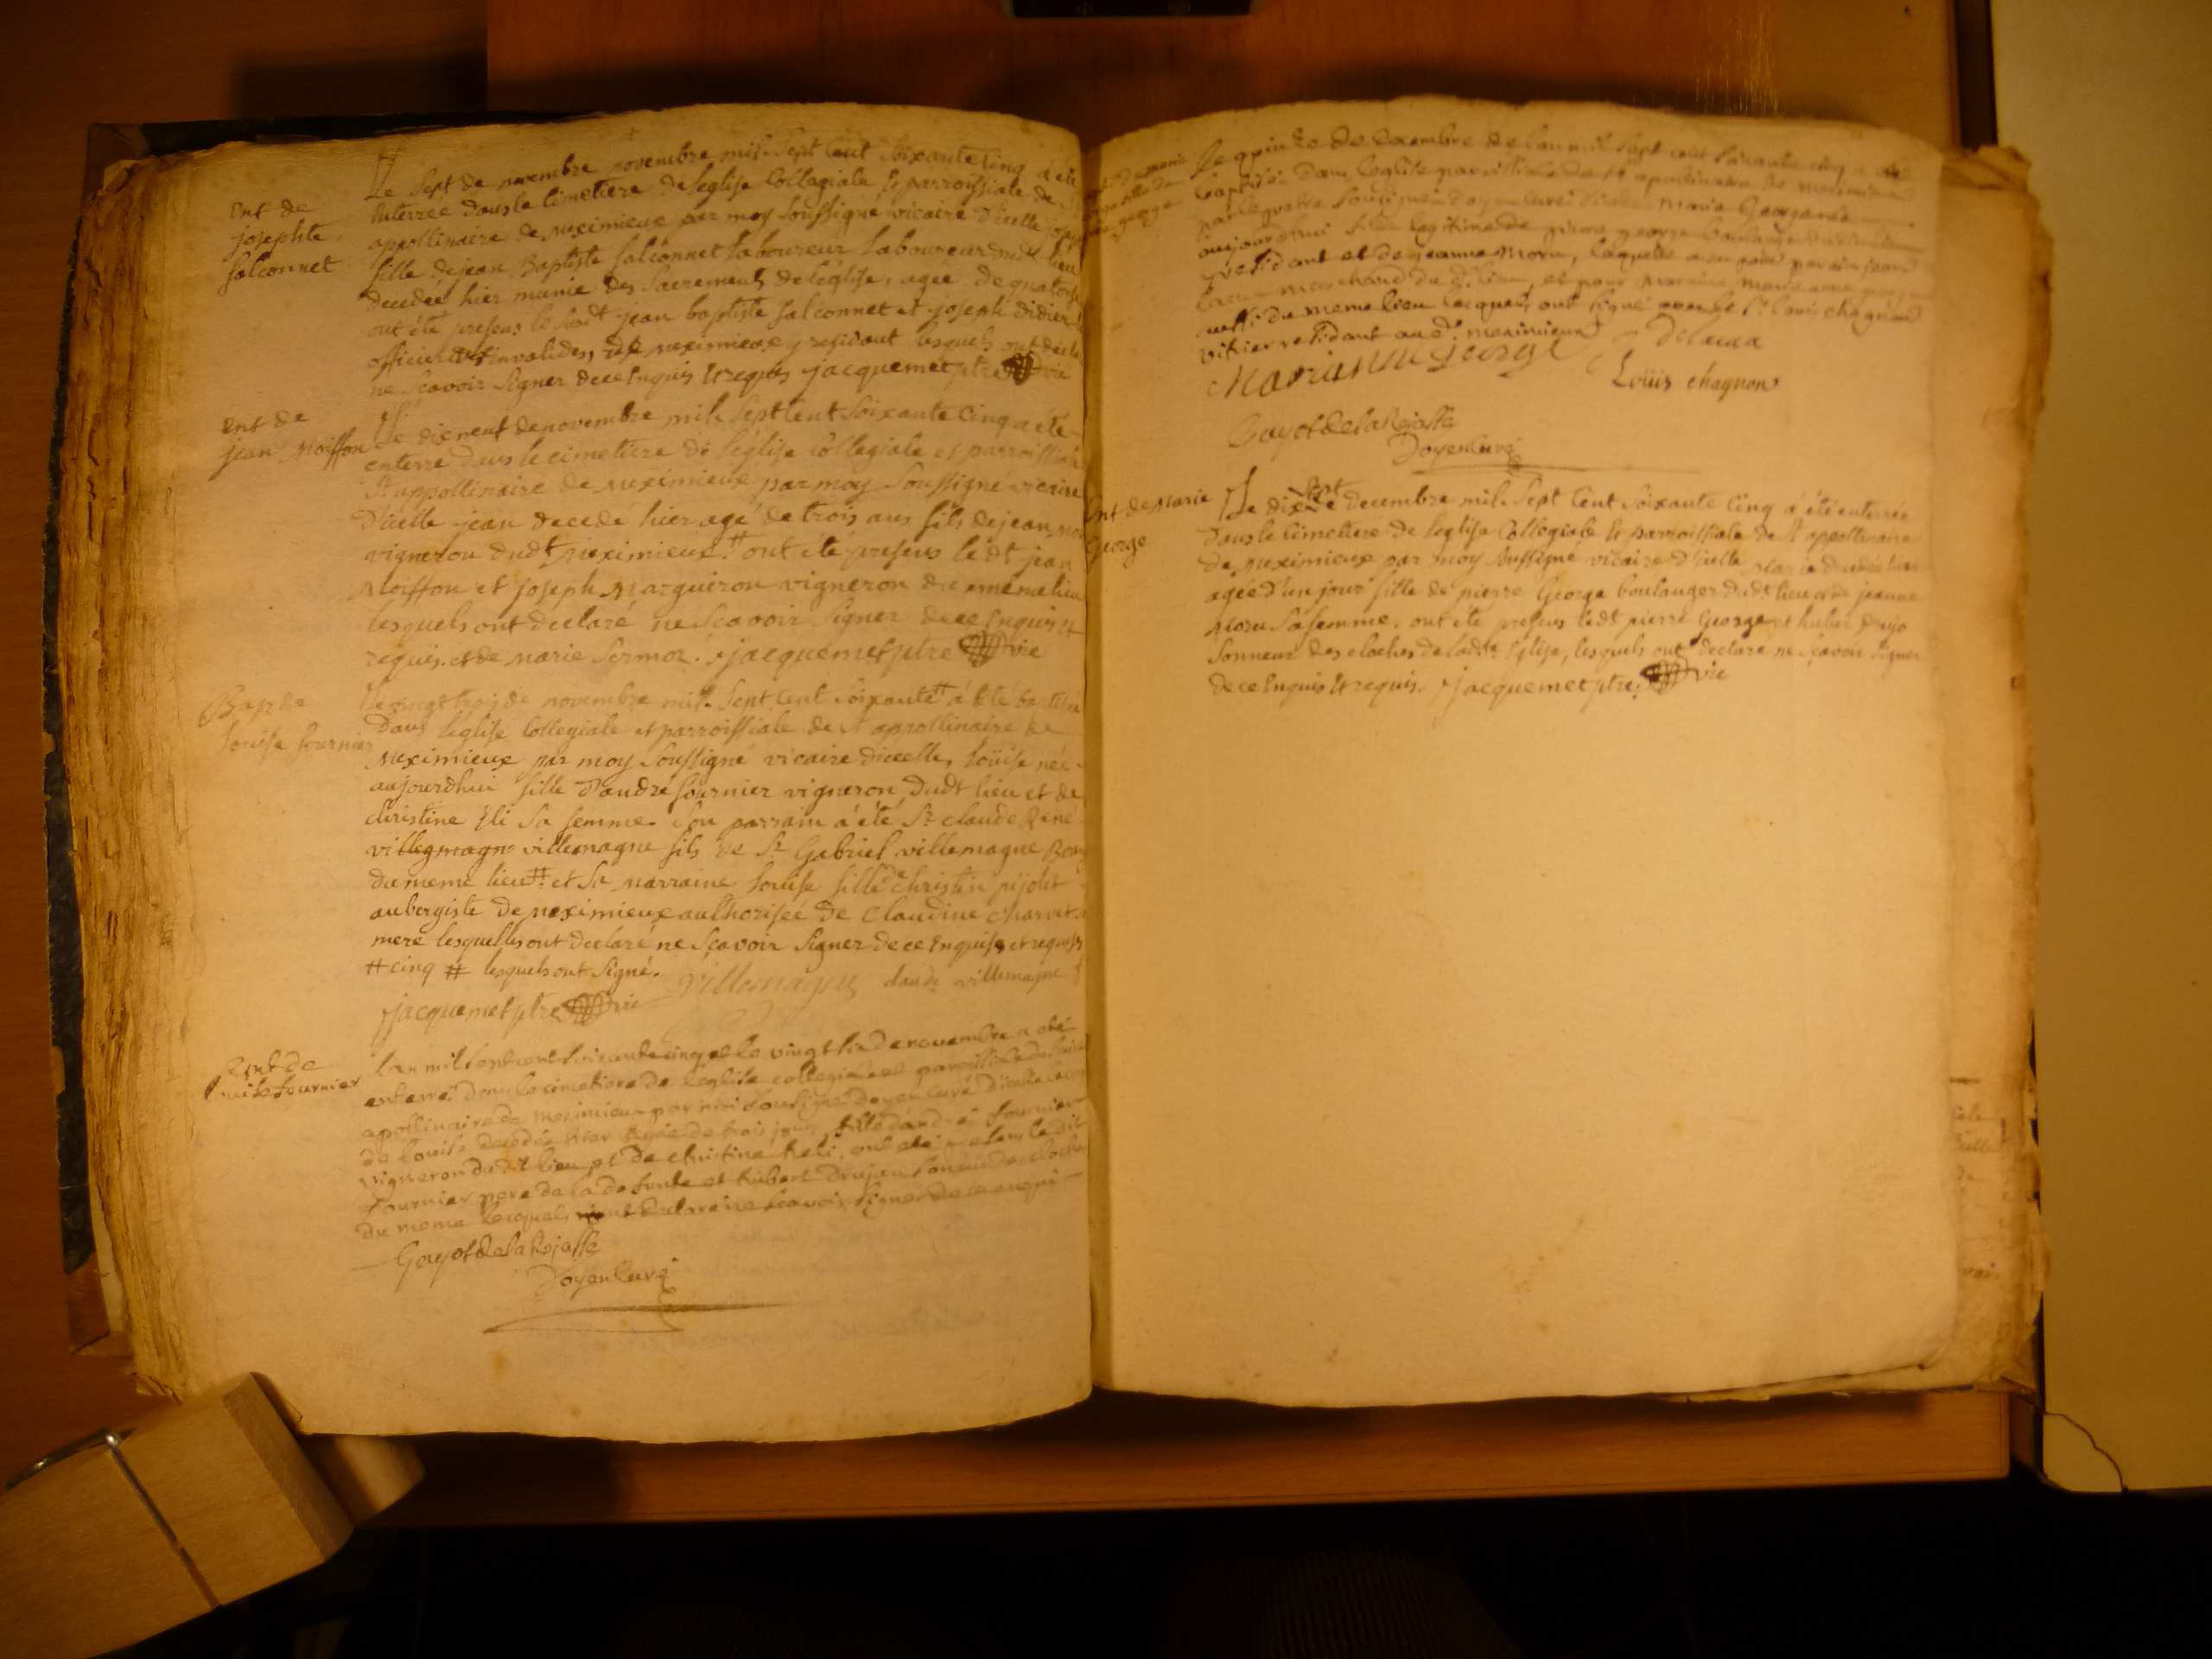 Ent de
josephte
falconnet
Le sept de novembre novembre mil sept cent soixante cinq a été
enterrée dans le cimetiere de l'eglise Collegiale et parroissiale de St
appollinaire de meximieux par moy soussigné vicaire d'icelle
fille de jean Baptiste falconnet laboureur laboureur dudt lieu
decedée hier munie des sacremens de l'eglise, agée de quatorze
ont été presens le susdt jean baptiste falconnet et joseph didier
officier des invalides, de meximieux y residant lesquels ont declaré
ne sçavoir signer de ce Enquis et requis jacquemet ptre vic
Ent de
jean Moiffon
Le dix neuf de novembre mil sept cent soixante cinq a été
enterré dans le cimetiere de l'eglise Collegiale et parroissiale
St appollinaire de meximieux par moy soussigné vicaire
d'icelle jean decedé hier agé de trois ans fils de jean
vigneron dudt meximieux # ont été presens ledt jean
Moiffon et joseph Marguiron vigneron du meme lieu
lesquels ont declaré ne sçavoir signer de ce Enquis et
requis. et de marie sermoz. jacquemet ptre vic
Bap de
louise fournier
Le vingt trois de novembre mil sept cent soixante # a été baptisée
Dans l'église Collegiale et parroissiale de St appollinaire de
Meximieux par moy soussigné vicaire dicelle, Loüise née
aujourdhui fille d'andré fournier vigneron dudt lieu et de
christine Eli sa femme. son parrain a été Sr claude René
villegmagne villemagne fils de Sr Gabriel villemagne
du meme lieu # et sa marraine louise fille de christin pijolet
aubergiste de meximieux authorisée de Claudine charvet sa
mere lesquelles ont declaré ne sçavoir signer de ce Enquises et requises
# cinq # lesquels ont signé. villemagne claude villemagne
jacquemet ptre vic
Ent de
Louise fournier
L'an mil sept cent soixante cinq et le vingt six de novembre a eté
enterré dans le cimetiere de l'eglise collegiale et paroissiale de saint
apollinaire de Meximieux par moi soussigné doyen curé d'icelle le corps
de Louise decedée hier agée de trois jours fille d'andré fournier
vigneron du dit lieu et de christine heli, ont eté presens le dit
fournier pere de la defunte et hubert drujon soneur des cloches
du meme lesquels ont declaré ne scavoir signer de ce enquis
Goyot de la Rejasse
Doyen Curé
Le quinze de decembre de l'an mil sept cent soixante cinq a été
baptisée dans l'eglise paroissiale de st apollinaire de meximieux
par le pretre soussigné doyen curé d'icelle marie George née
aujourdhui fille legitime de pierre george boulanger
y residant et de jeanne Moru, laquelle a eu pour parain
marchand du dt lieu, et pour maraine marianne
aussi du meme lieu lesquels ont signé avec le sr louis chagnon
vitrier residant au dt meximieux
Marianne George
Loüis chagnon
Goyot de la Rejasse
Doyen Curé
Ent de Marie
George
Le dix sept decembre mil sept cent soixante cinq a été enterrée
Dans le cimetiere de l'eglise Collegiale et parroissiale de St appollinaire
de Meximieux par moy soussigné vicaire d'icelle Marie decedée hier
agée d'un jour fille de pierre George boulanger dudt lieu et de jeanne
Moru sa femme. ont été presens ledt pierre George et huber drujo
sonneur des cloches de ladte Eglise, lesquels ont declaré ne sçavoir signer
de ce Enquis et requis. jacquemet ptre vic